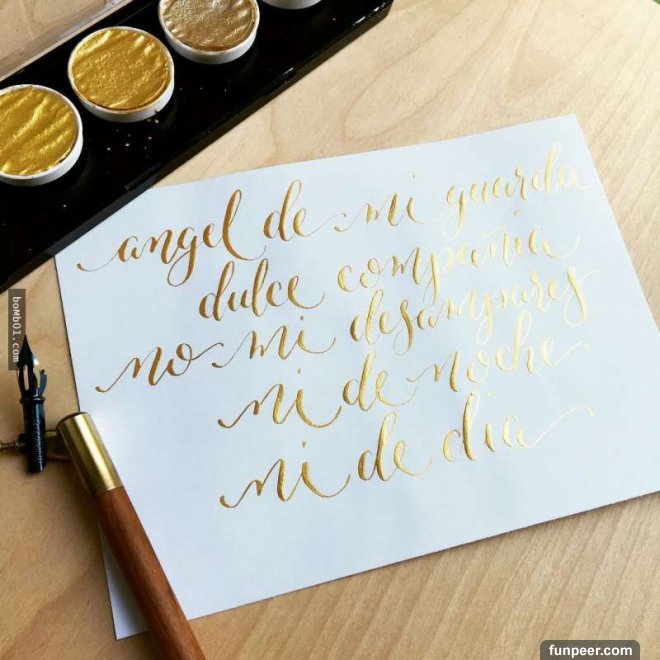 angel de mi guarda
dulce compañia
no mi desampares
ni de noche
ni de dia
boMb01.com
funpeer.com